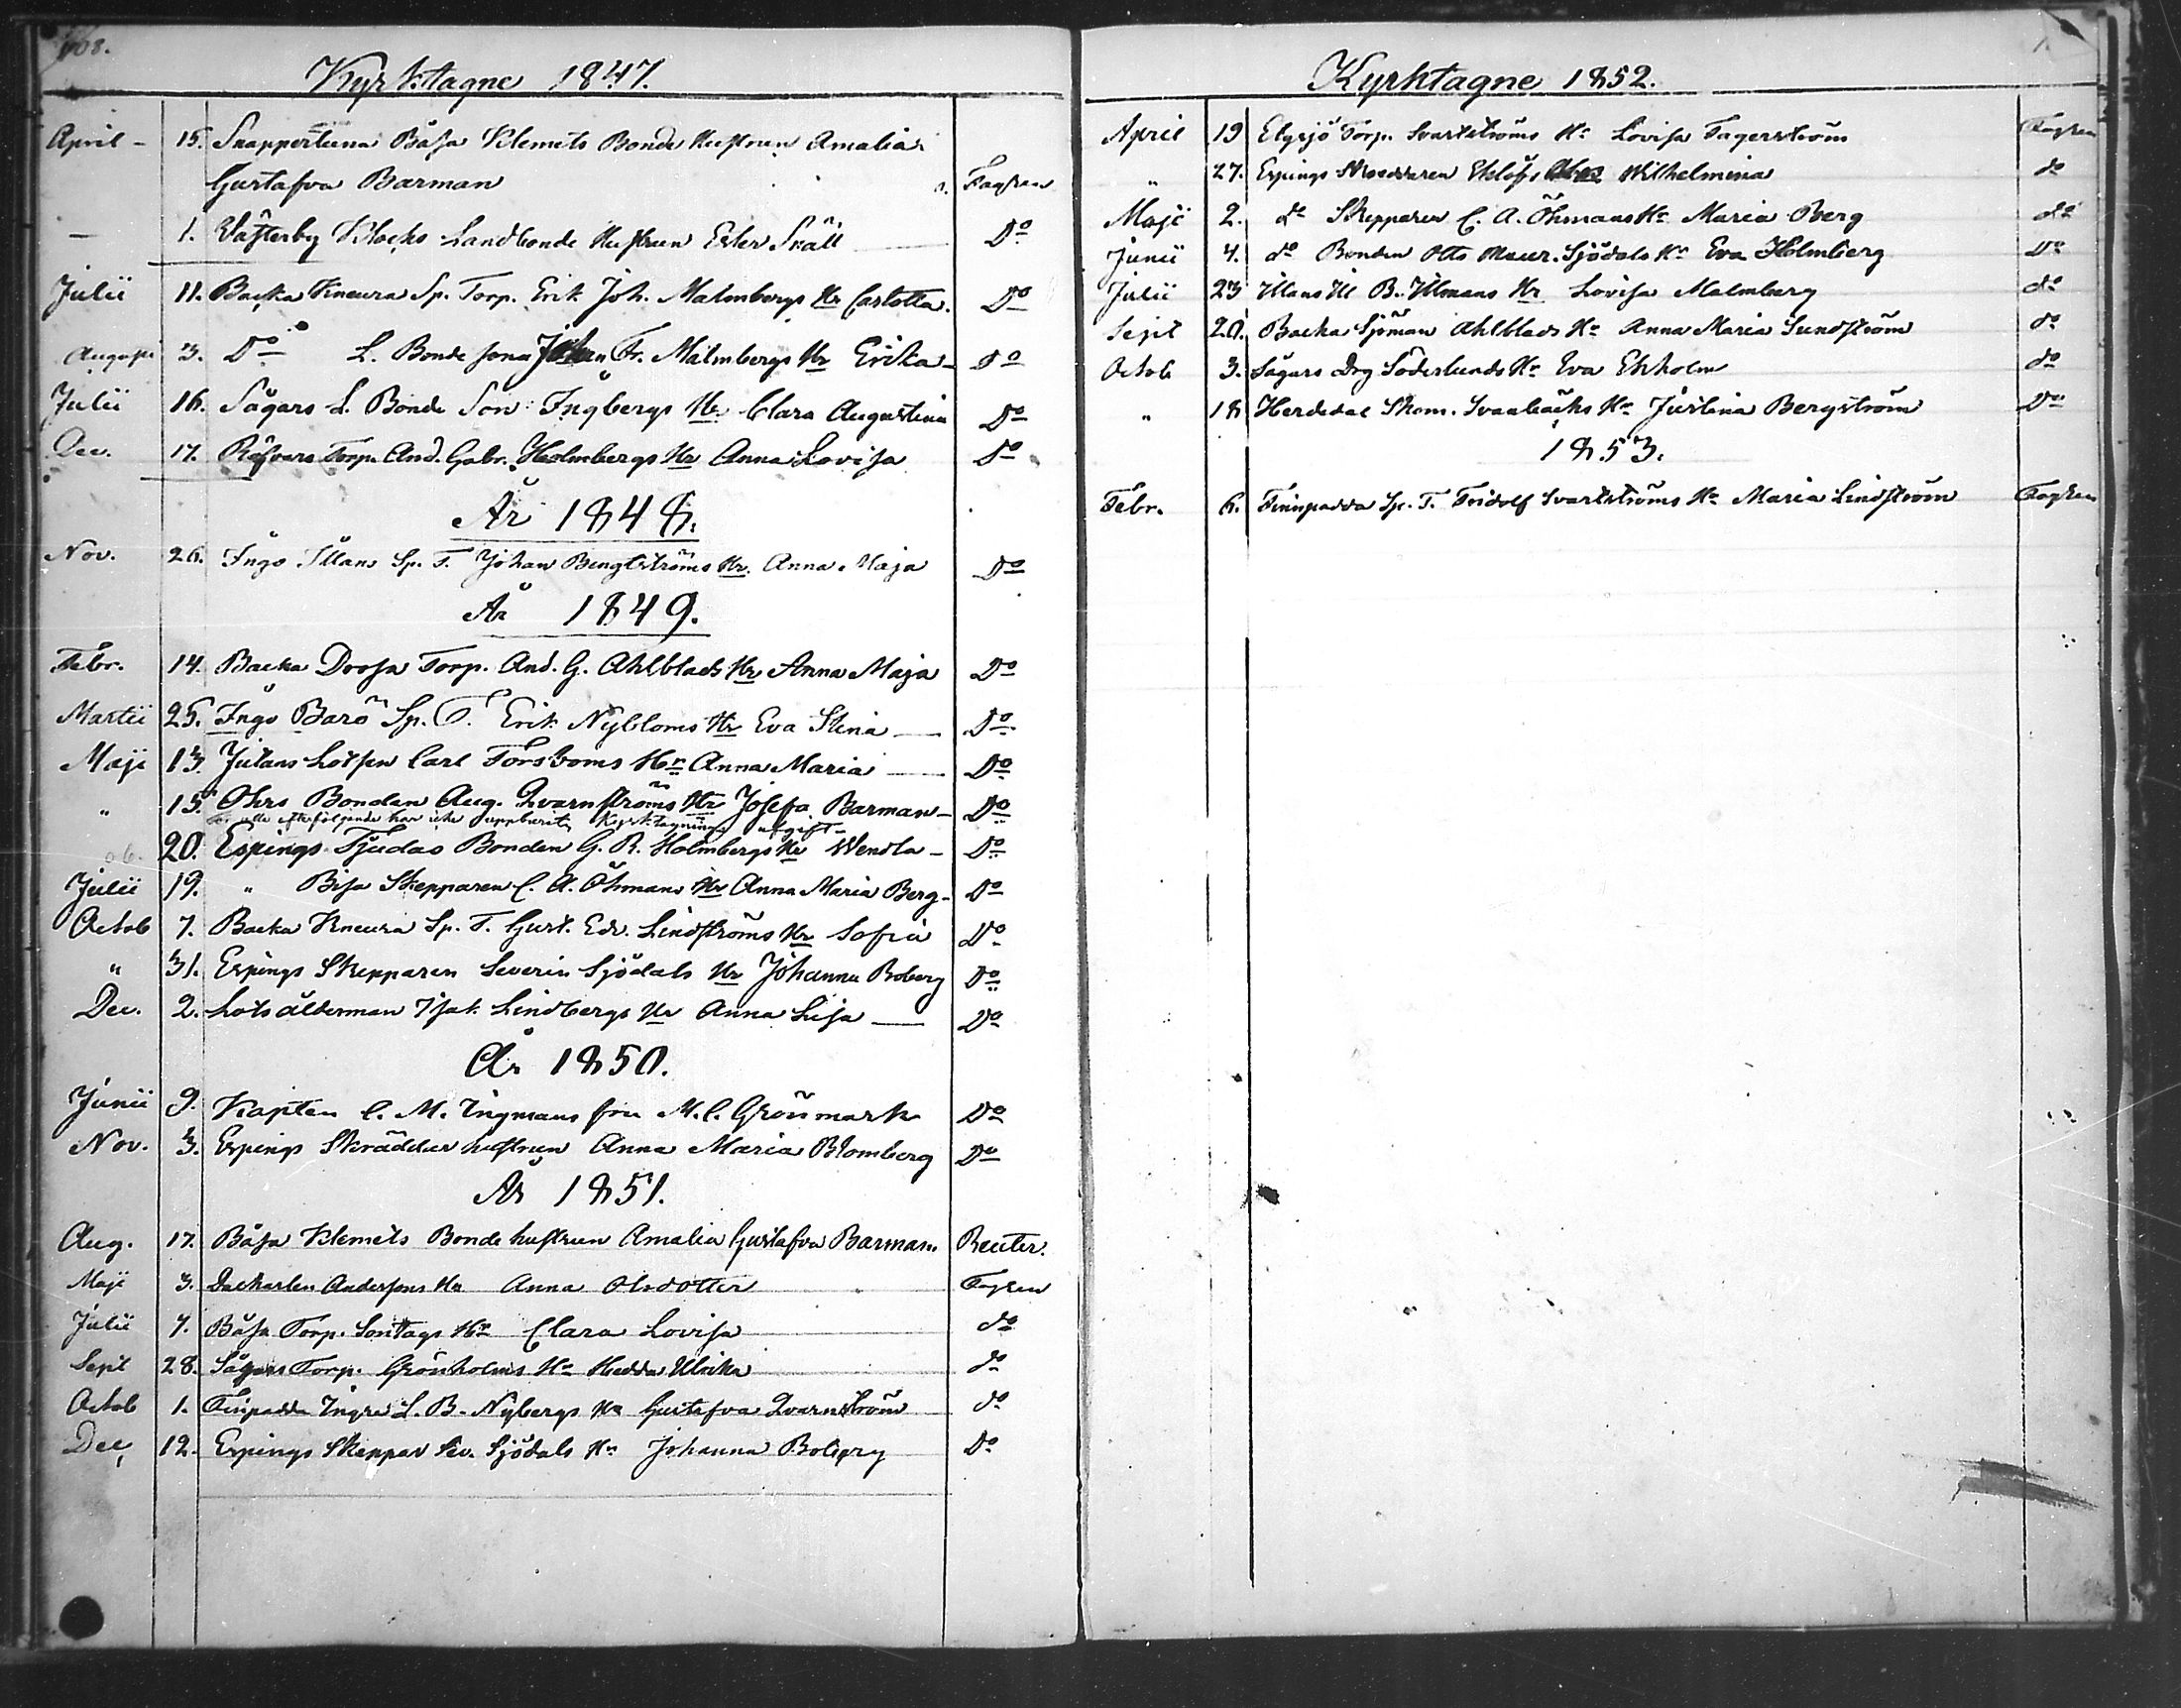 168.
Kyrktagne 1847.
April - 15. Snappertuna Båsa Klemets Bonde Hustrun Amalia
Gustafva Barman Fagren
— 1. Västerby Klocks Landbonde Hustrun Ester Snäll Do
Julii 11. Backa Kneura Sp. Torp. Erik Joh. Malmbergs Hr Carlotta. Do
Augusti 3. Do L. Bonde sona Johan Fr. Malmbergs Hr Erika Do
Julii 16. Sågars L. Bonde Son Ingbergs Hr Clara Augustina Do
Dec. 17. Räfvars Torp. And. Gabr. Holmbergs Hr Anna Lovisa Do
År 1848.
Nov. 26. Ingo Illans Sp. T. Johan Bengtströms Hr. Anna Maja Do
År 1849.
Febr. 14. Backa Drosa Torp. And. G. Ahlblads Hr Anna Maja Do
Martii 25. Ingo Barö Sp. T. Erik Nybloms Hr Eva Stina — Do
Maji 13. Julans Lotsen Carl Forsboms Hr Anna Maria — Do
" 15. Ohrs Bonden Aug. Qvarnströms Hr Josefa Barman — Do
alla efterföljande har icke uppburits Kyrktagnings afgift
20. Espings Tjudas Bonden G. R. Holmbergs Hr Wendla — Do
Julii 19. " Bisa Skepparen C. A. Öhmans Hr Anna Maria Berg - Do
Octob 7. Backa Kneura Sp. T. Gust. Edv. Lindströms Hr Sofia Do
" 31. Espings Skepparen Severin Sjödals Hr Johanna Boberg Do
Dec. 2. Lots ålderman Isak Lindbergs Hr Anna Lisa — Do
År 1850.
Junii 9. Kapten C. M. Ingmans fru M. C. Grönmark Do
Nov. 3. Espings Skräddar hustrun Anna Maria Blomberg Do
År 1851.
Aug. 17. Båsa Klemets Bonde hustrun Amalia Gustafva Barman Reuter.
Maji 3. Dalkarlen Anderssons Hr Anna Olsdotter Fagren
Julii 7. Båsa Torp. Sontags Hr Clara Lovisa do
Sept 28. Sågars Torp. Grönholms Hr Hedda Ulrika do
Octob 1. Finpadda Ingra L. B. Nybergs Hr Gustafva Qvarnström do
Dec, 12. Espings Skeppar Sev. Sjödals Hr Johanna Boberg Do
Kyrktagne 1852.
April 19 Elgsjö Torp. Svartströms Hr Lovisa Fagerström Fagren
" 27. Espings Skreddaren Eklöfs Wilhelmina do
Maji 2. do Skepparen C. A. Öhmans Hr Maria Berg do
Junii 4. do Bonden Otto Maur. Sjödals Hr Eva Holmberg Do
Julii 23 B. Ulmans Hr Lovisa Malmberg do
Sept 20. Backa Sjöman Ahlblads Hr Anna Maria Sundström do
Octob 3. Sågars Drg Söderlunds Hr Eva Ekholm do
" 18 Herdedal Skom. Svanbäcks Hr Justina Bergström Do
1853.
Febr. 6. Finnpadda Sp. T. Fridolf Svartströms Hr Maria Lindström Fagren